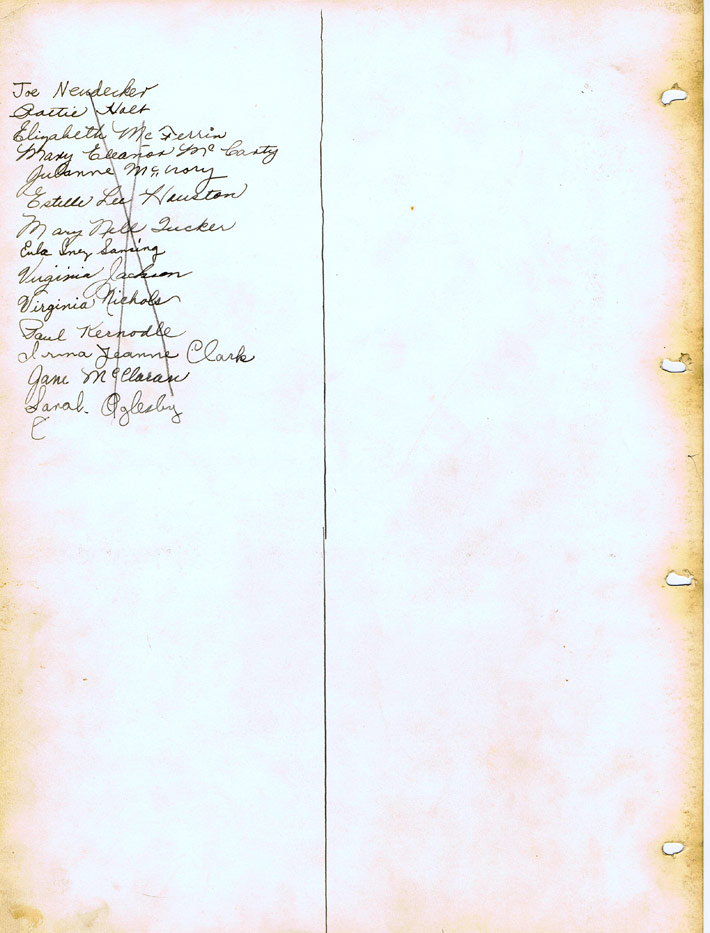 Joe Neudecker
Holt
Elizabeth McFerrin
Mary Eleanor McCarty
Julianne McCrory
Estelle Lee Houston
Mary Nell Tucker
Eula Inez Sansing
Virginia Jackson
Virginia Nichols
Paul Kernodle
Irma Jeanne Clark
Jane McClaran
Sarah Oglesby